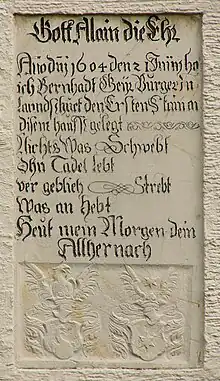 Gott Alain die Ehr
Año dñi 1604 den 2 Juny ho
ich Bernhadt Geÿr Burger in
lanndzhuet den Ersten Stain an
disem hauss gelegt
Nichts Was Schwebt
Ohn Tadel lebt
ver geblich Strebt
Was an hebt
Heut mein Morgen dein
Allher nach